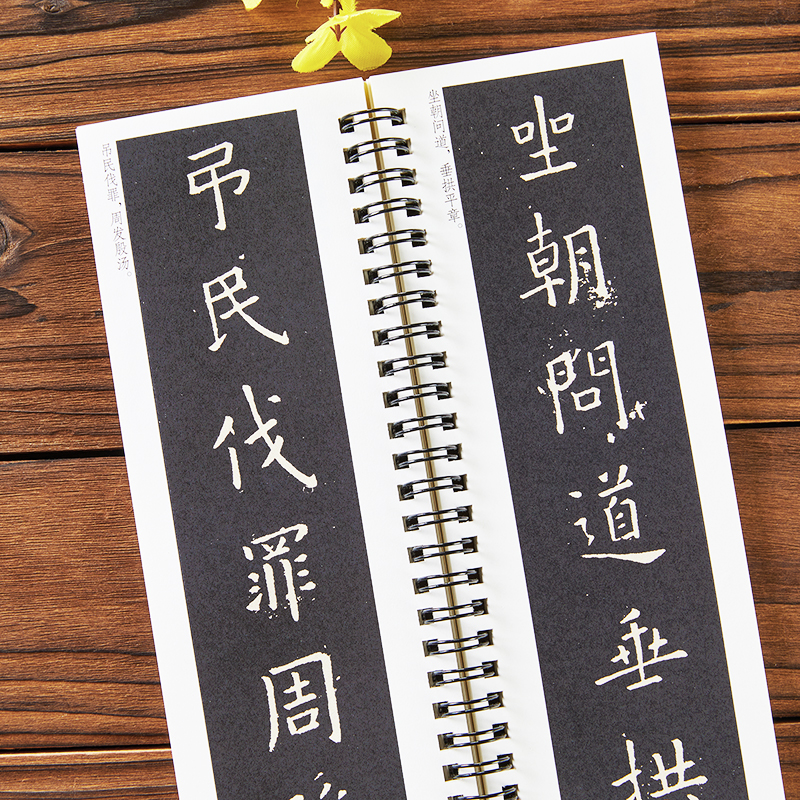 吊民伐罪，周发殷汤。
吊民伐罪周
坐朝问道，垂拱平章。
坐朝問道垂拱